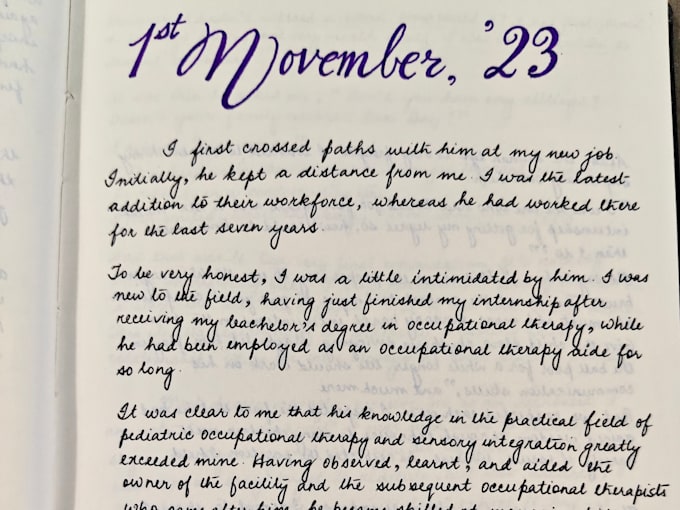 1st November, '23
I first crossed paths with him at my new job.
Initially, he kept a distance from me. I was the latest
addition to their workforce, whereas he had worked there
for the last seven years.
To be very honest, I was a little intimidated by him. I was
new to the field, having just finished my internship after
receiving my bachelor's degree in occupational therapy, while
he had been employed as an occupational therapy aide for
so long.
It was clear to me that his knowledge in the practical field of
pediatric occupational therapy and sensory integration greatly
exceeded mine. Having observed, learnt, and aided the
owner of the facility and the subsequent occupational therapists
who came after him, he became skilled at